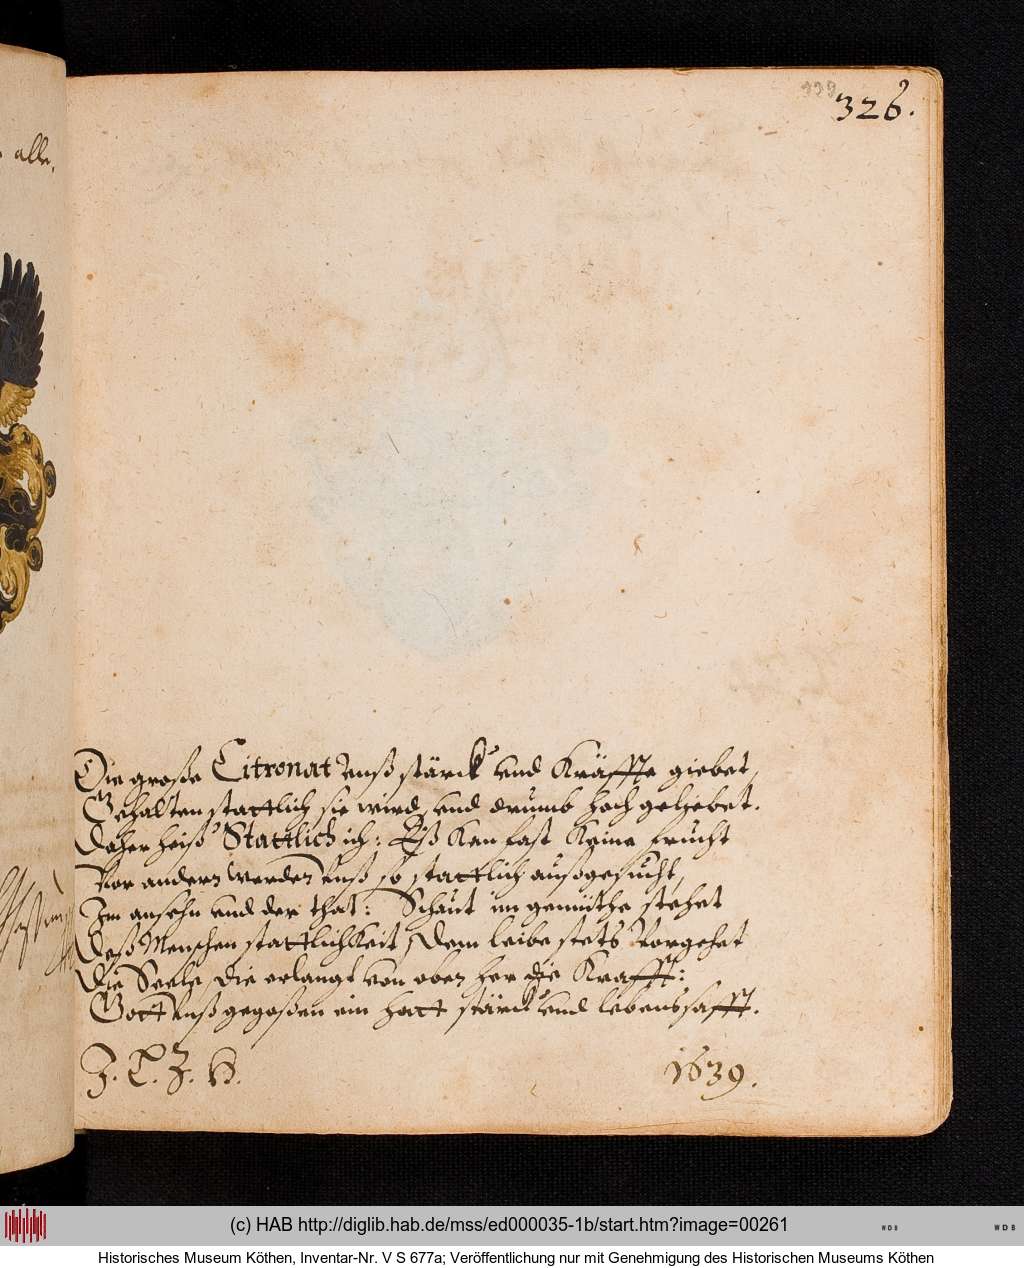 alle,
326.
Die große Citronat unß stärck' und Kräffte giebet,
Behalten stattlich sie wird, und drumb hoch geliebet.
Daher heiß' Stattlich ich: Eß kan fast keine frucht
Vor andern werden unß so stattlich außgesucht,
Im ansehn und der that: Schaut im gemüthe stehet
Deß Menschen stattlichkeit, Dem leibe stets vorgehet
Die Seele, die erlangt von oben her die Krafft:
Gott unß gegoßen ein hatt stärck' und lebenssafft.
1639.
(c) HAB http://diglib.hab.de/mss/ed000035-1b/start.htm?image=00261
WDB
WDB
Historisches Museum Köthen, Inventar-Nr. V S 677a; Veröffentlichung nur mit Genehmigung des Historischen Museums Köthen